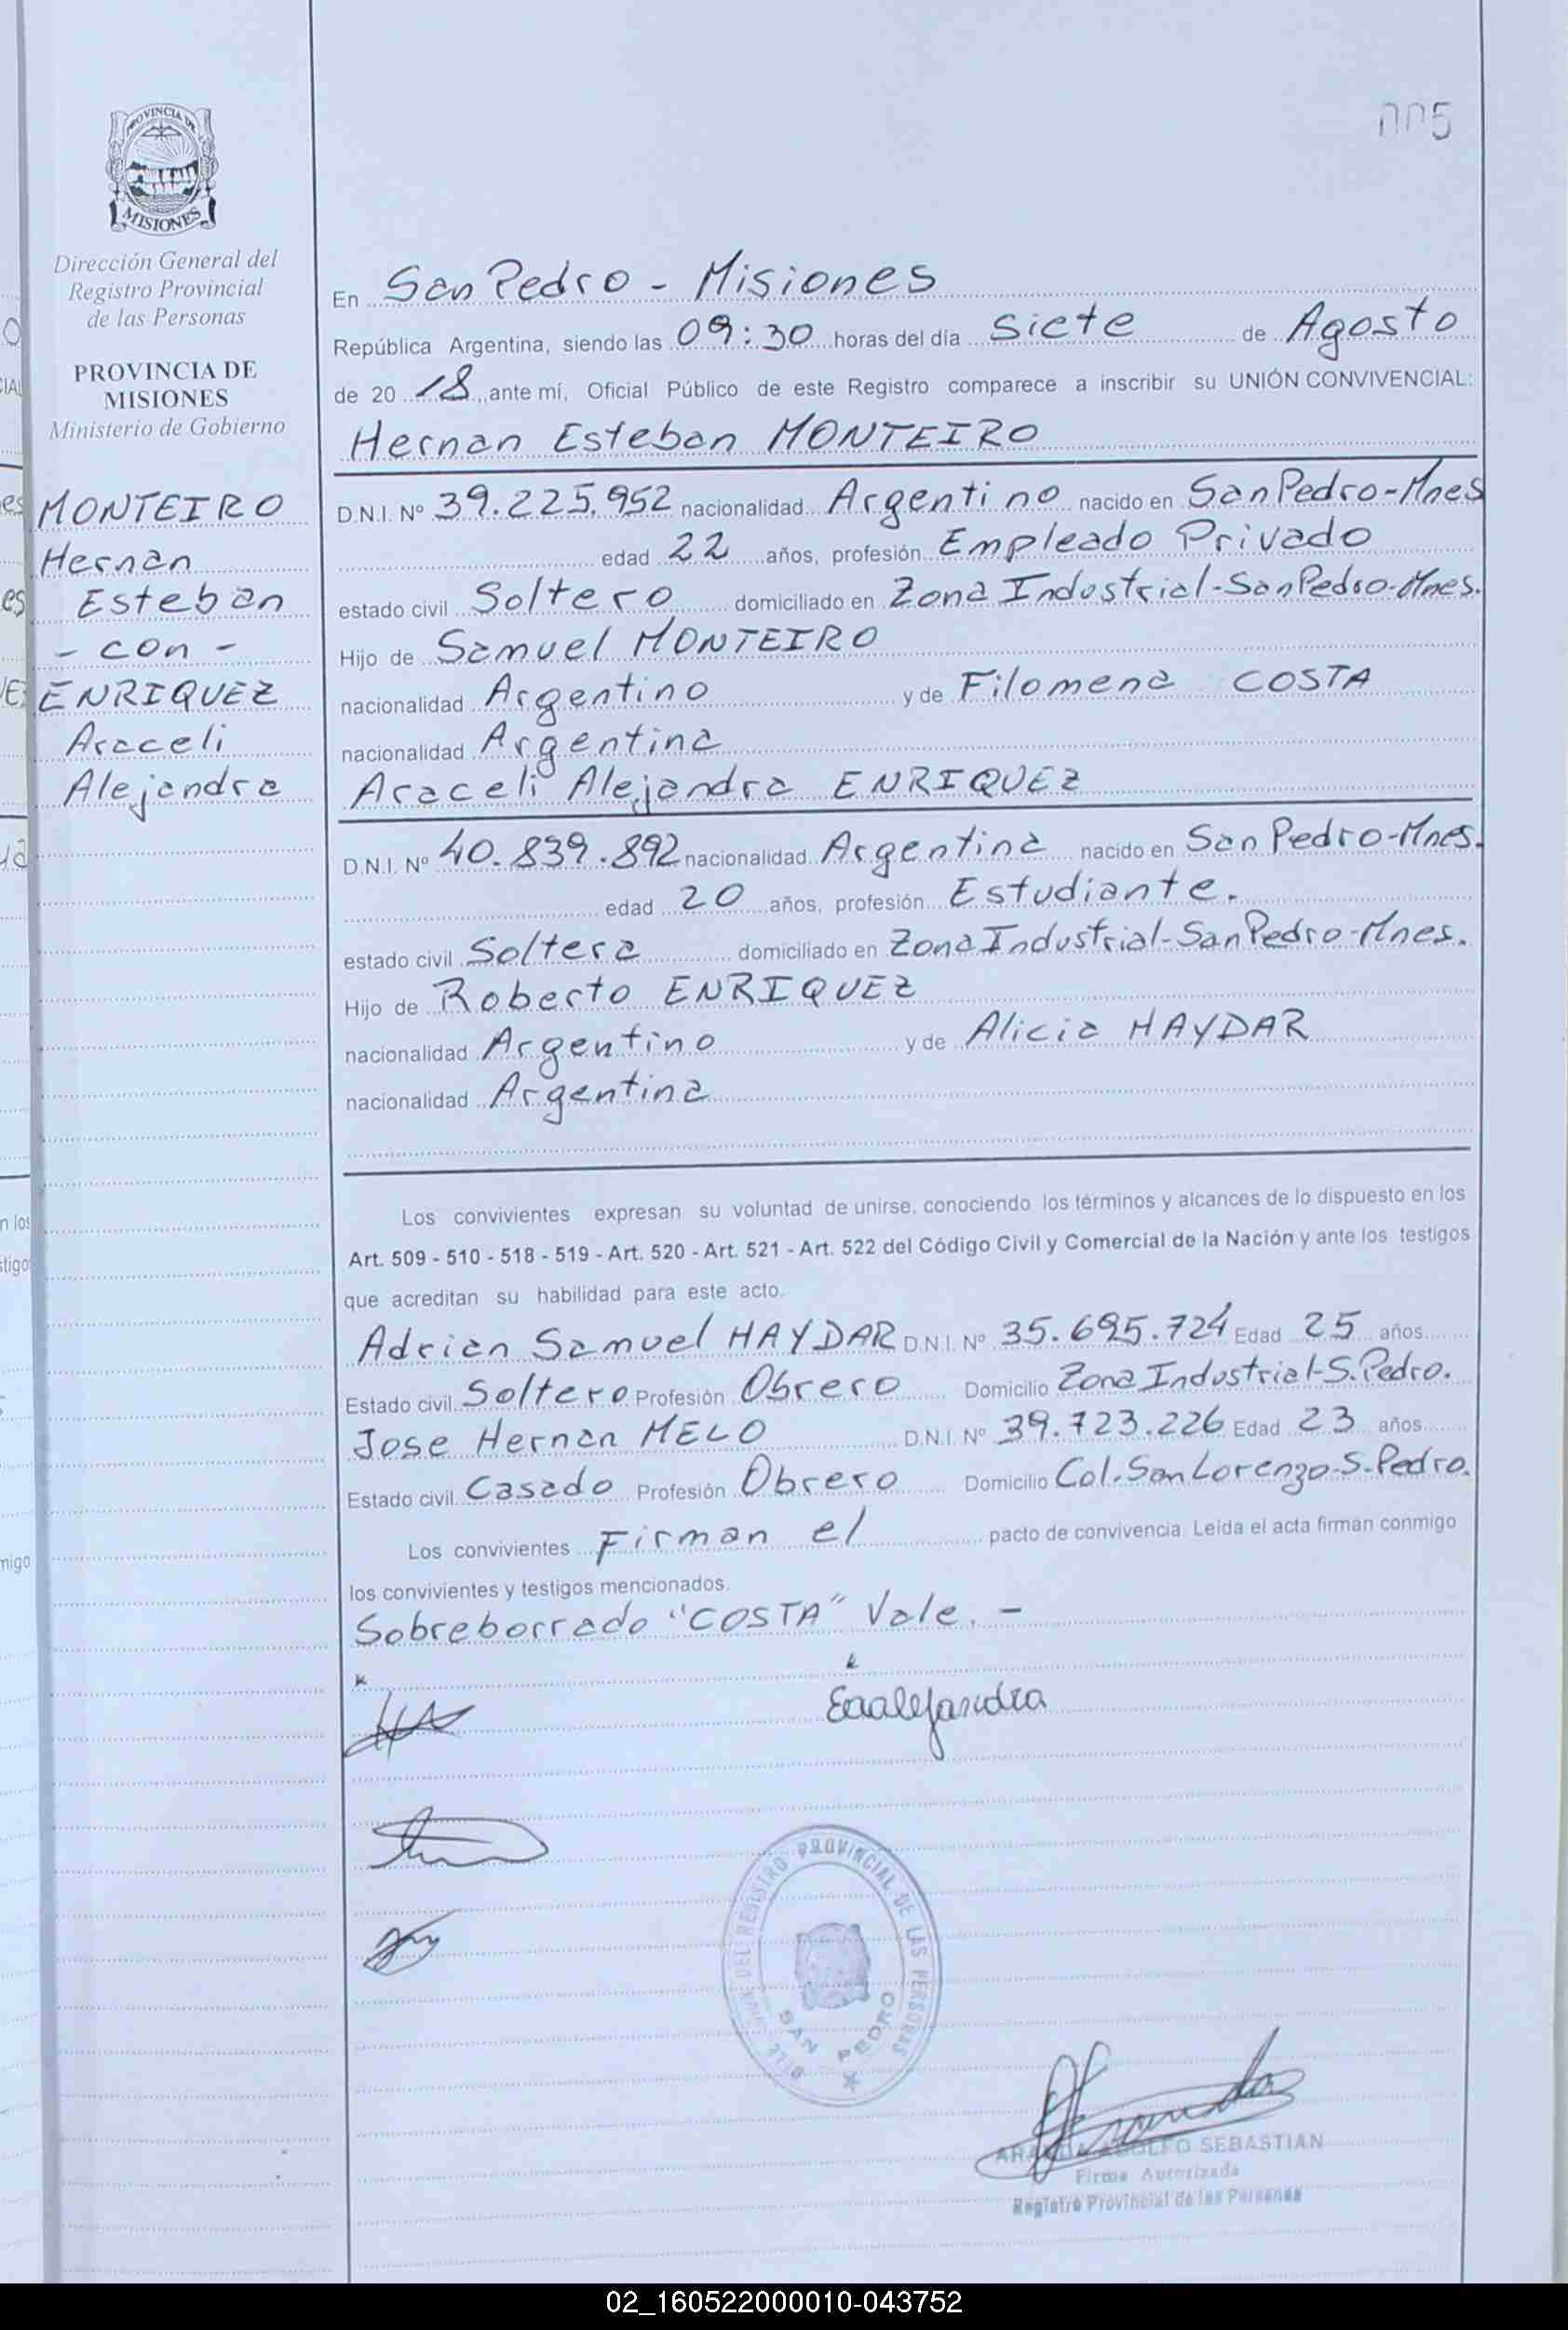 005
PROVINCIA DE
MISIONES
Dirección General del
Registro Provincial
de las Personas
PROVINCIA DE
MISIONES
Ministerio de Gobierno
MONTEIRO
Hernán
Esteban
- con -
ENRIQUEZ
Araceli
Alejandra
En San Pedro - Misiones
República Argentina, siendo las 09:30 horas del día Siete de Agosto
de 20 18 ante mí, Oficial Público de este Registro comparece a inscribir su UNIÓN CONVIVENCIAL:
Hernan Esteban MONTEIRO
D.N.I. Nº 39.225.952 nacionalidad Argentino nacido en San Pedro-Mnes
edad 22 años, profesión Empleado Privado
estado civil Soltero domiciliado en Zona Industrial-San Pedro-Mnes.
Hijo de Samuel MONTEIRO
nacionalidad Argentino y de Filomena COSTA
nacionalidad Argentina
Araceli Alejandra ENRIQUEZ
D.N.I. Nº 40.839.892 nacionalidad Argentina nacido en San Pedro-Mnes.
edad 20 años, profesión Estudiante.
estado civil Soltera domiciliado en Zona Industrial-San Pedro-Mnes.
Hijo de Roberto ENRIQUEZ
nacionalidad Argentino y de Alicia HAYDAR
nacionalidad Argentina
Los convivientes expresan su voluntad de unirse, conociendo los términos y alcances de lo dispuesto en los
Art. 509 - 510 - 518 - 519 - Art. 520 - Art. 521 - Art. 522 del Código Civil y Comercial de la Nación y ante los testigos
que acreditan su habilidad para este acto.
Adrian Samuel HAYDAR D.N.I. Nº 35.695.724 Edad 25 años
Estado civil Soltero Profesión Obrero Domicilio Zona Industrial-S.Pedro.
Jose Hernan MELO D.N.I. Nº 39.723.226 Edad 23 años
Estado civil Casado Profesión Obrero Domicilio Col. San Lorenzo-S.Pedro.
Los convivientes Firman el pacto de convivencia. Leída el acta firman conmigo
los convivientes y testigos mencionados.
Sobreborrado "COSTA" Vale. -
Eaalejandra
DEL REGISTRO PROVINCIAL DE LAS PERSONAS
SAN PEDRO
ARANDA ADOLFO SEBASTIAN
Firma Autorizada
Registro Provincial de las Personas
02_160522000010-043752